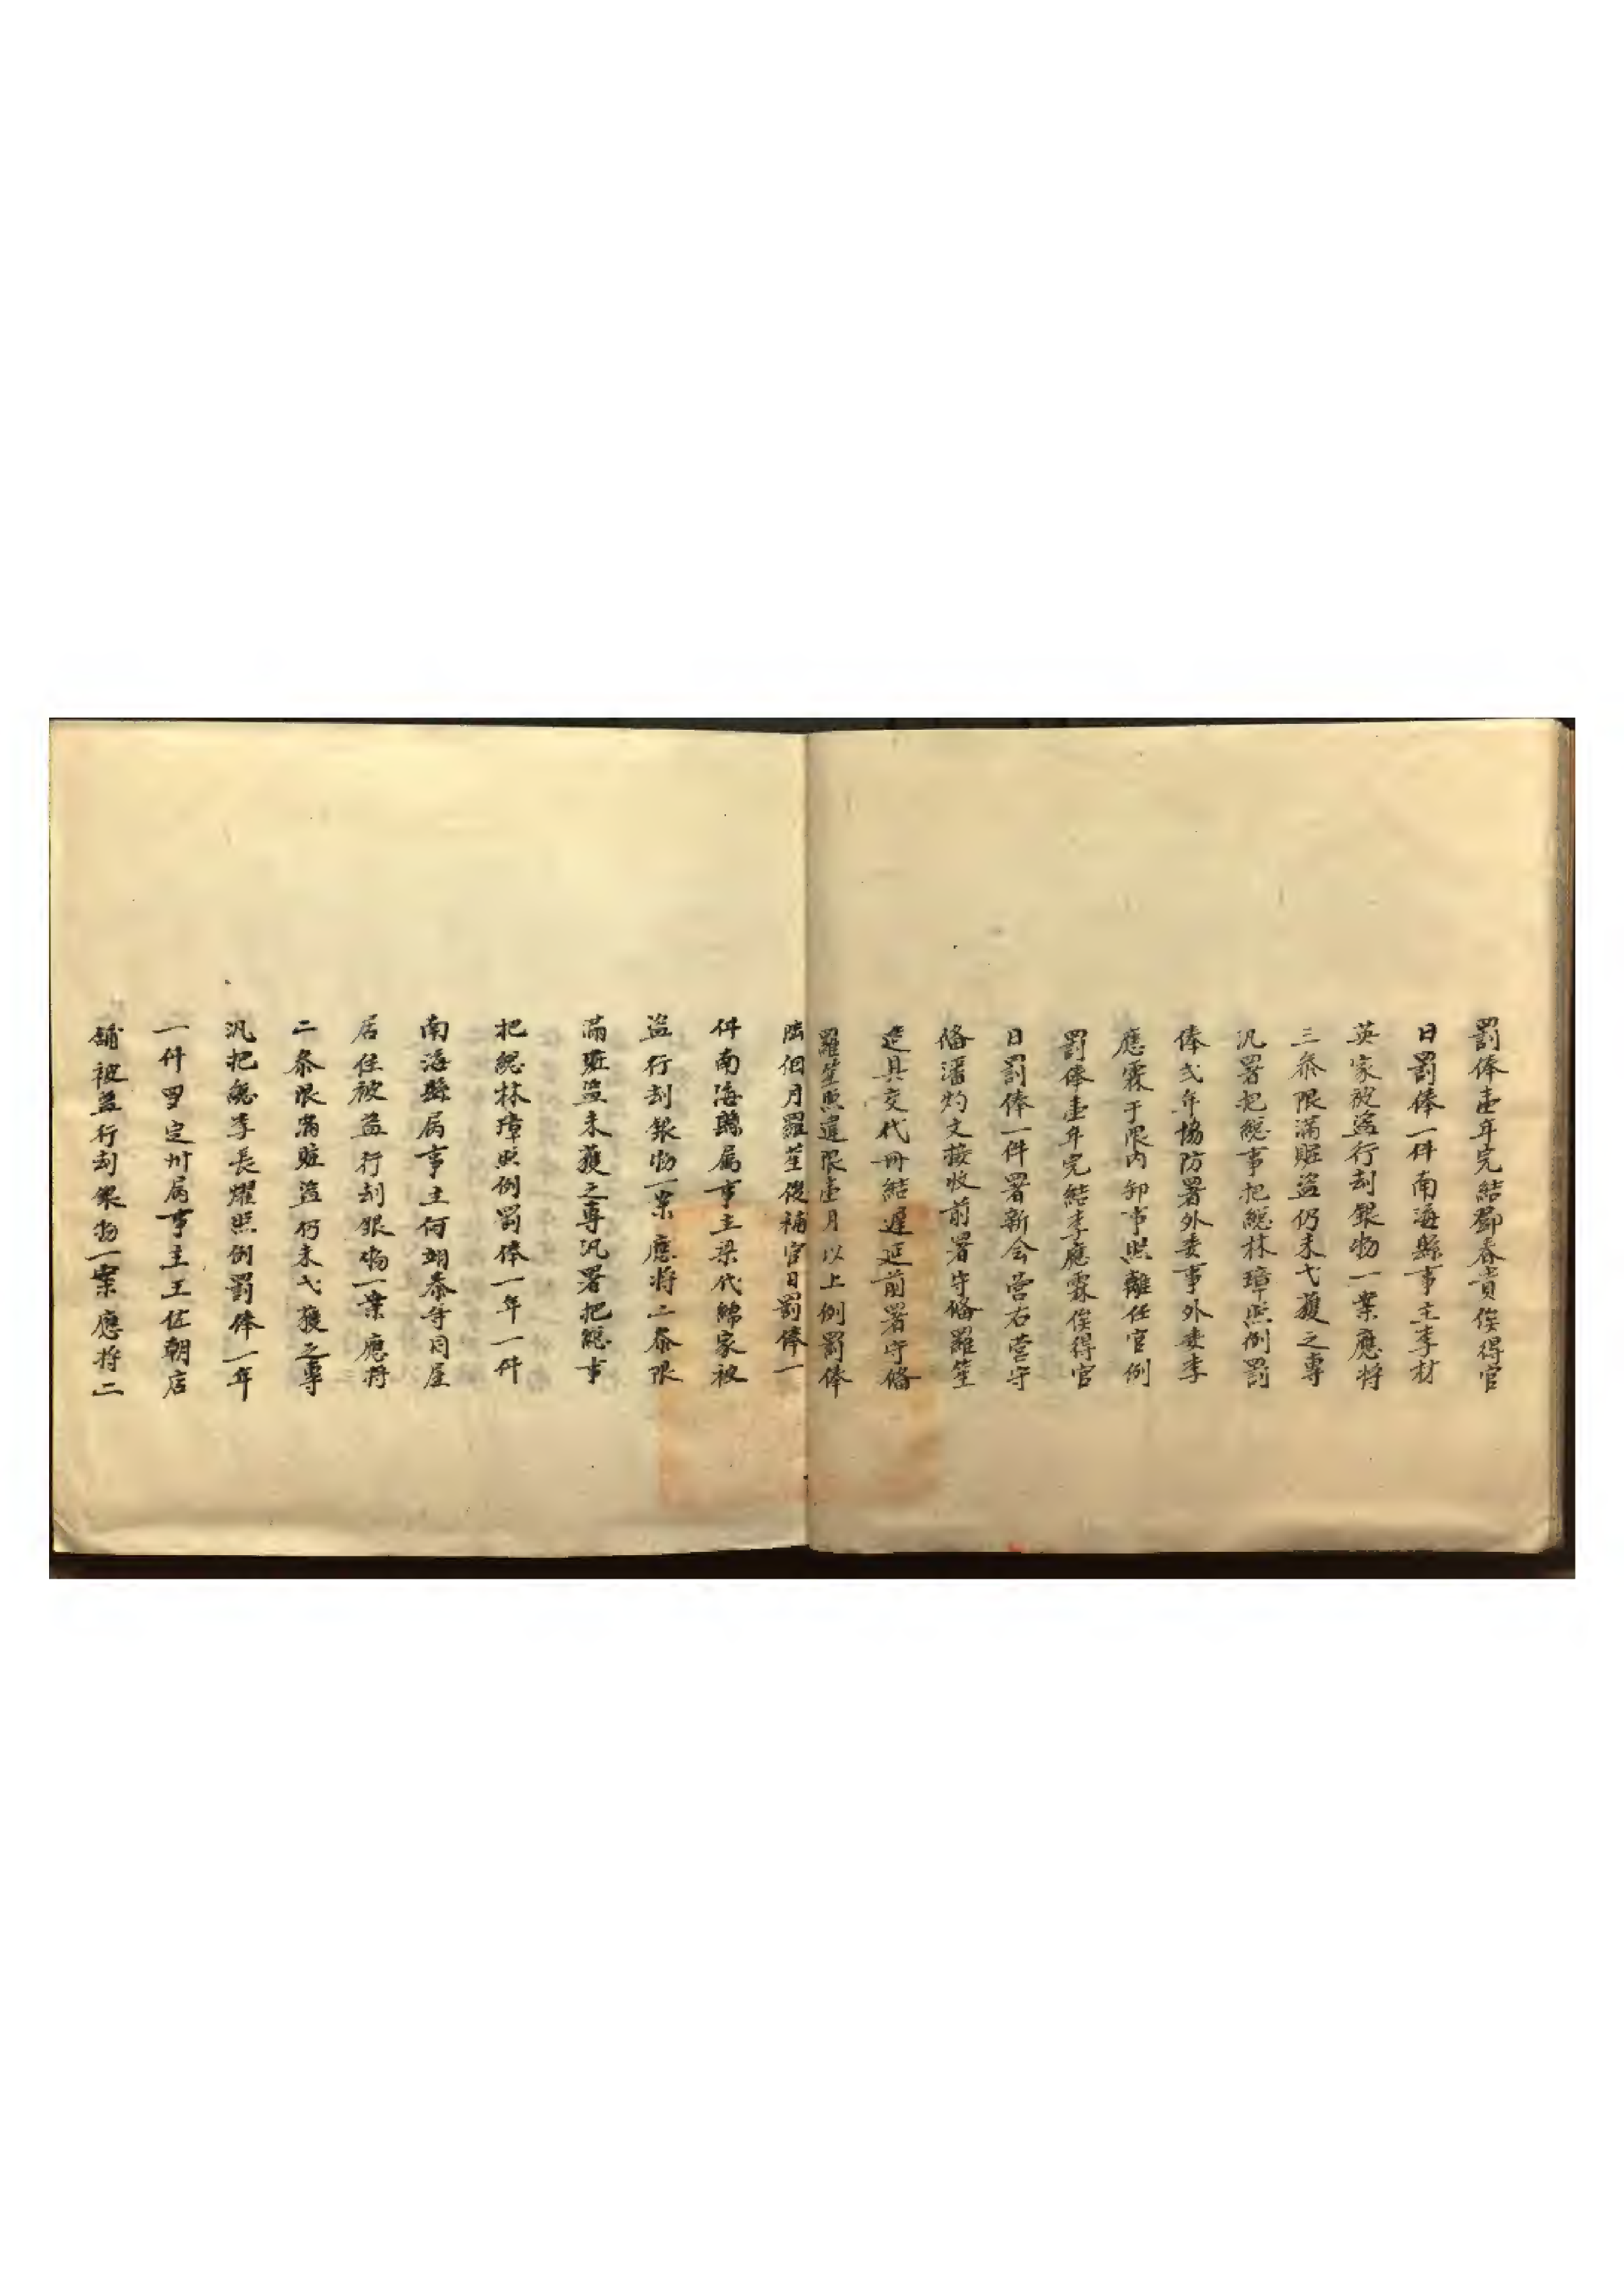 罰俸壹年完結鄧春貴俟得官
日罰俸一件南海縣事主李材
英家被盜行刦銀物一案應將
三叅限滿賍盜仍未弋獲之專
汛署把總事把總林璋照例罰
俸弍年協防署外委事外委李
應霖于限内卸事照離任官例
罰俸壹年完結李應霖俟得官
日罰俸一件署新会营右营守
俻潘灼文接收前署守俻羅笙
造具交代冊結遲延前署守俻
羅笙照違限壹月以上例罰俸
陆個月羅笙俊補官日罰俸一
件南海縣属事主梁代綿家被
盜行刦銀物一案應將二叅限
滿賍盜未獲之專汛署把總事
把總林璋照例罰俸一年一件
南海縣属事主何翊泰等同屋
居住被盜行刦銀物一案應將
二叅限滿賍盜仍未弋獲之專
汛把總李長耀照例罰俸一年
一件罗定州属事主王佐朝店
鋪被盜行刦銀物一案應將二